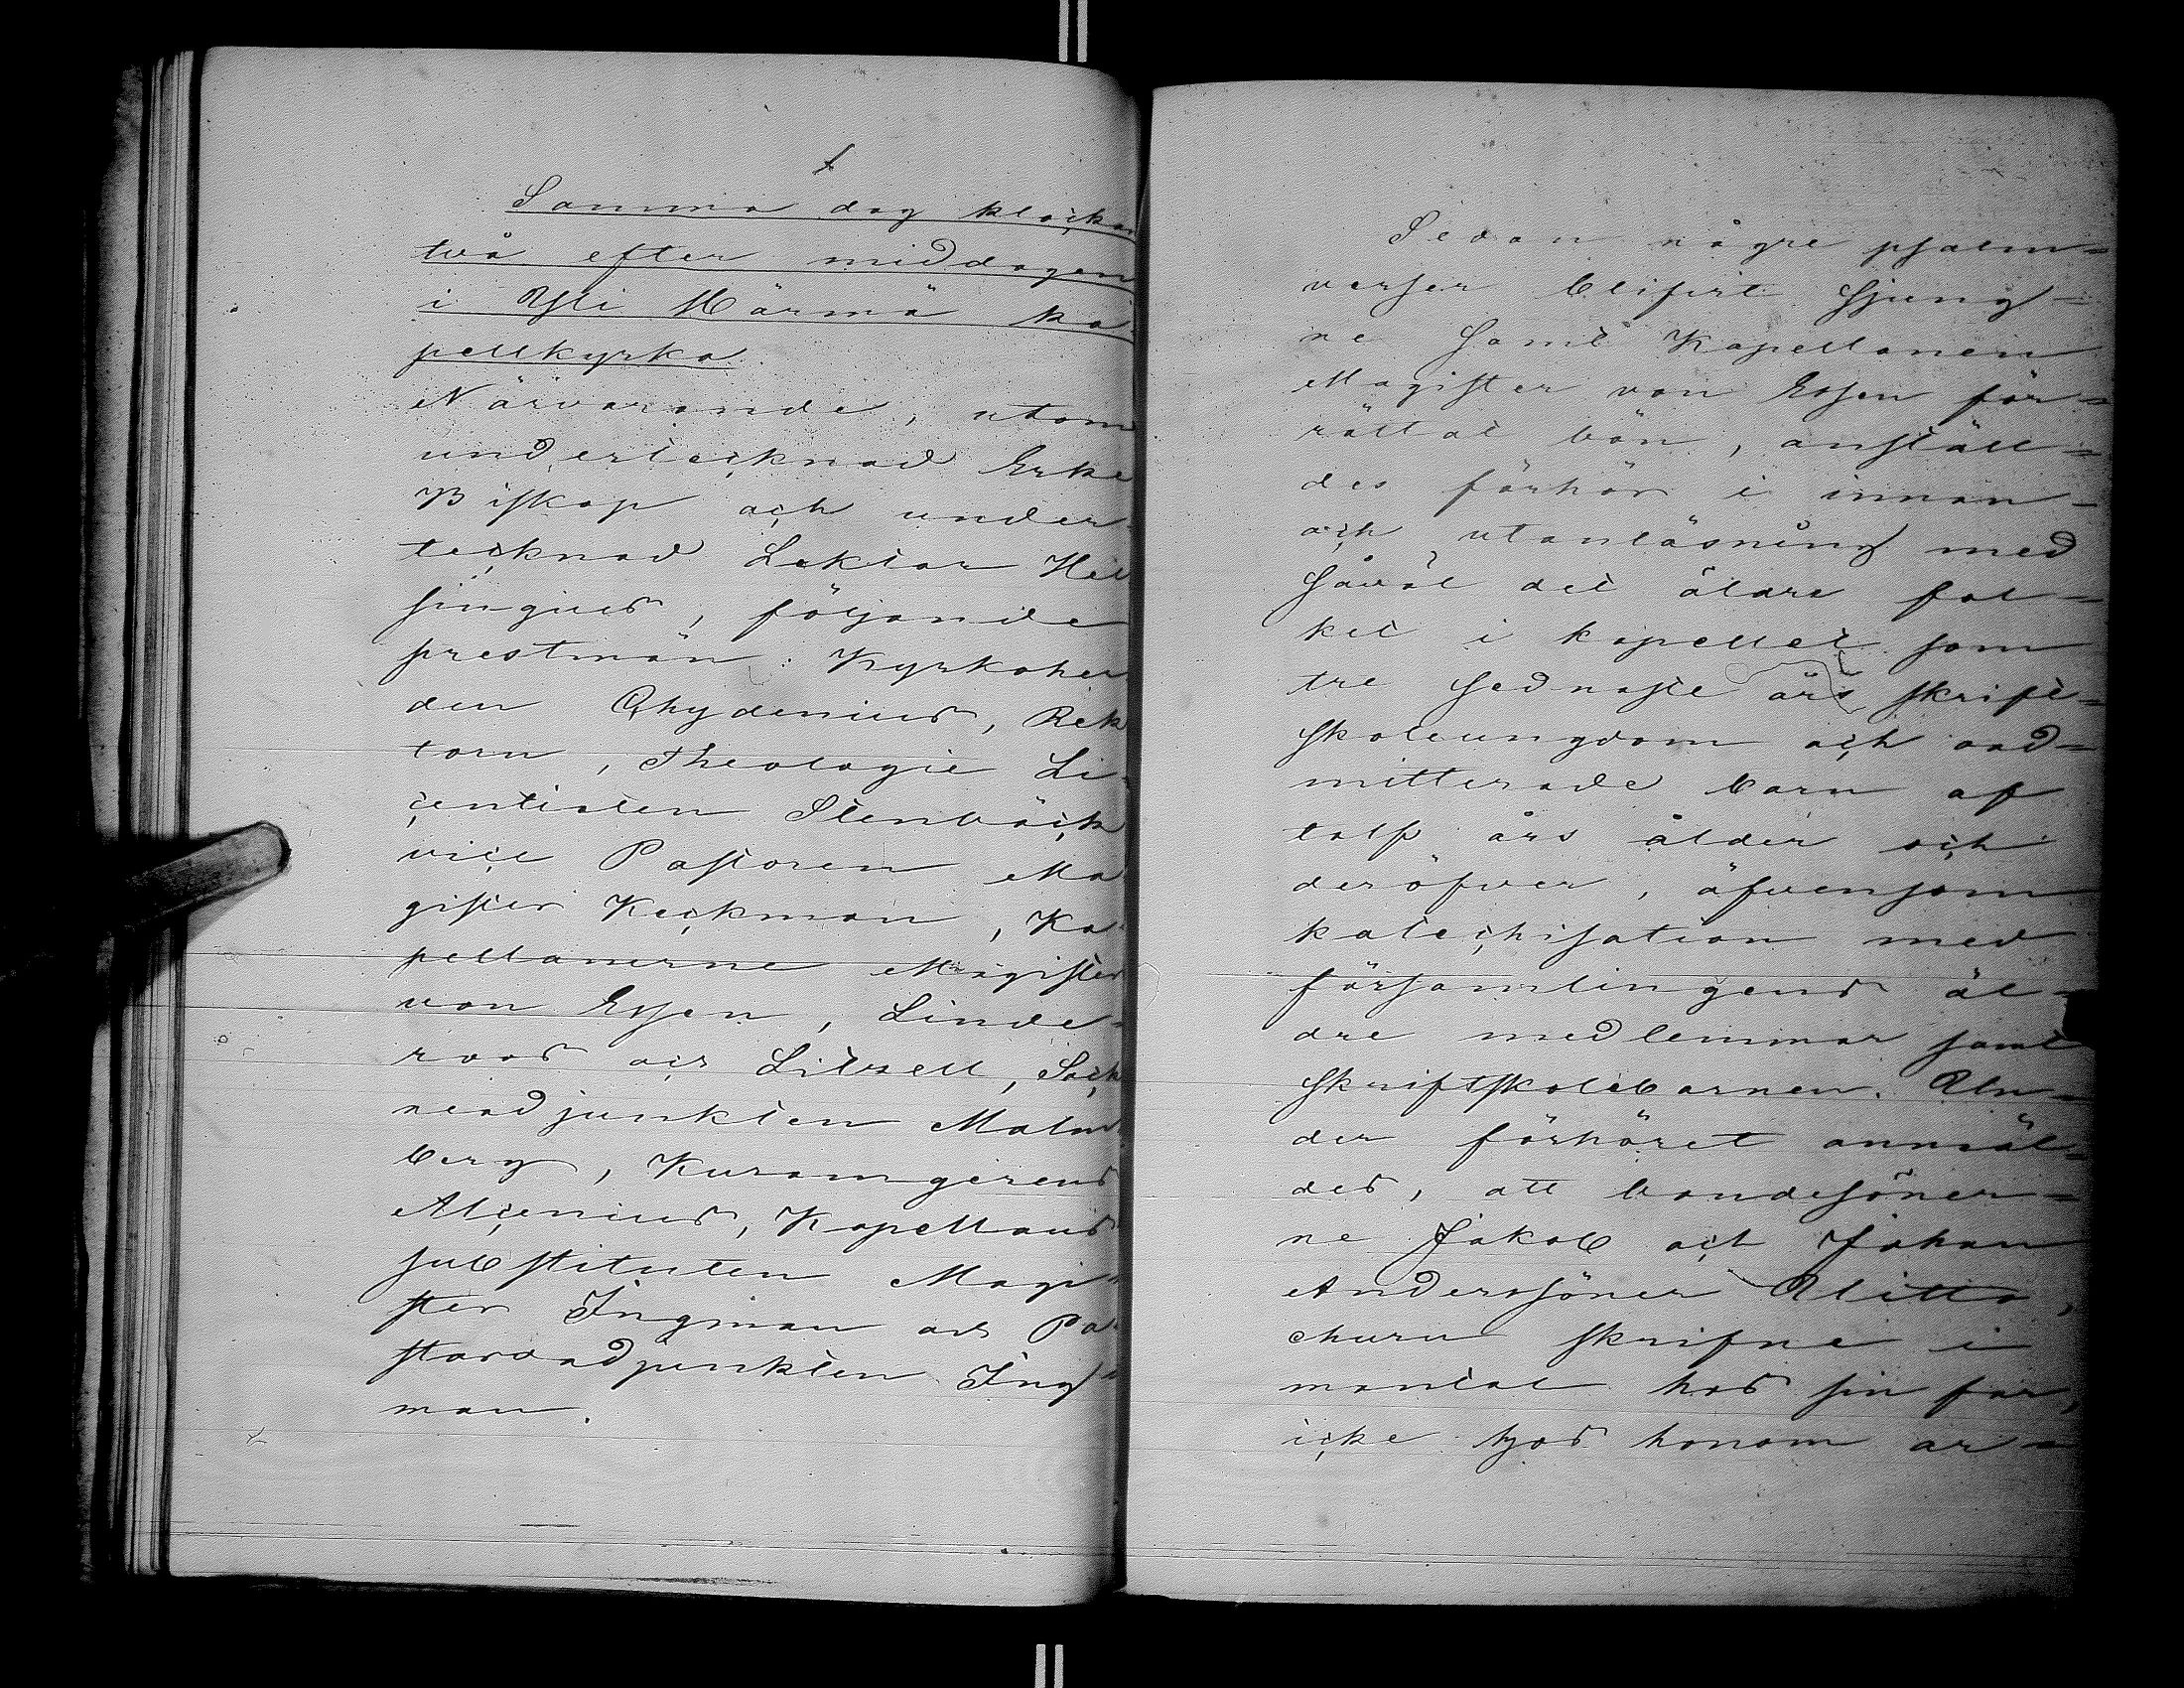 Samma dag klockan
två efter middagen
i Yli Härmä ka-
pellkyrka.
Närvarande, utom
undertecknad Erke
Biskop och under-
tecknad Lektor Hel
singius, följande
prestmän: Kyrkoher
den Chydenius, Rek
torn, Theologie Li-
centiaten Stenbäck
vice Pastoren Ma
gister Keckman, Ka-
pellanerne Magister
von Essen, Linde-
roos och Litzell, Sock
neadjunkten Malm
berg, Kuramgerens
Alcenius, Kapellans
substituten Magi-
ster Ingman och Pa-
storsadjunkten Ing-
man.
Sedan någre psalm-
verser blifvit sjung-
ne samt Kapellanen
Magister von Essen för-
rättat bön, anställ-
des förhör i innan-
och utanläsning med
såväl det äldre fol-
ket i kapellet som
tre sednaste års skrift-
skoleungdom och oad-
mitterade barn af
tolf års ålder och
deröfver, äfvensom
katechisation med
församlingens äl-
dre medlemmar samt
skriftskolebarnen. Un-
der förhöret anmäl-
des, att bondesöner-
ne Jakob och Johan
Anderssöner Ulitta,
ehuru skrifne i
mantal hos sin far,
icke hos honom ar-